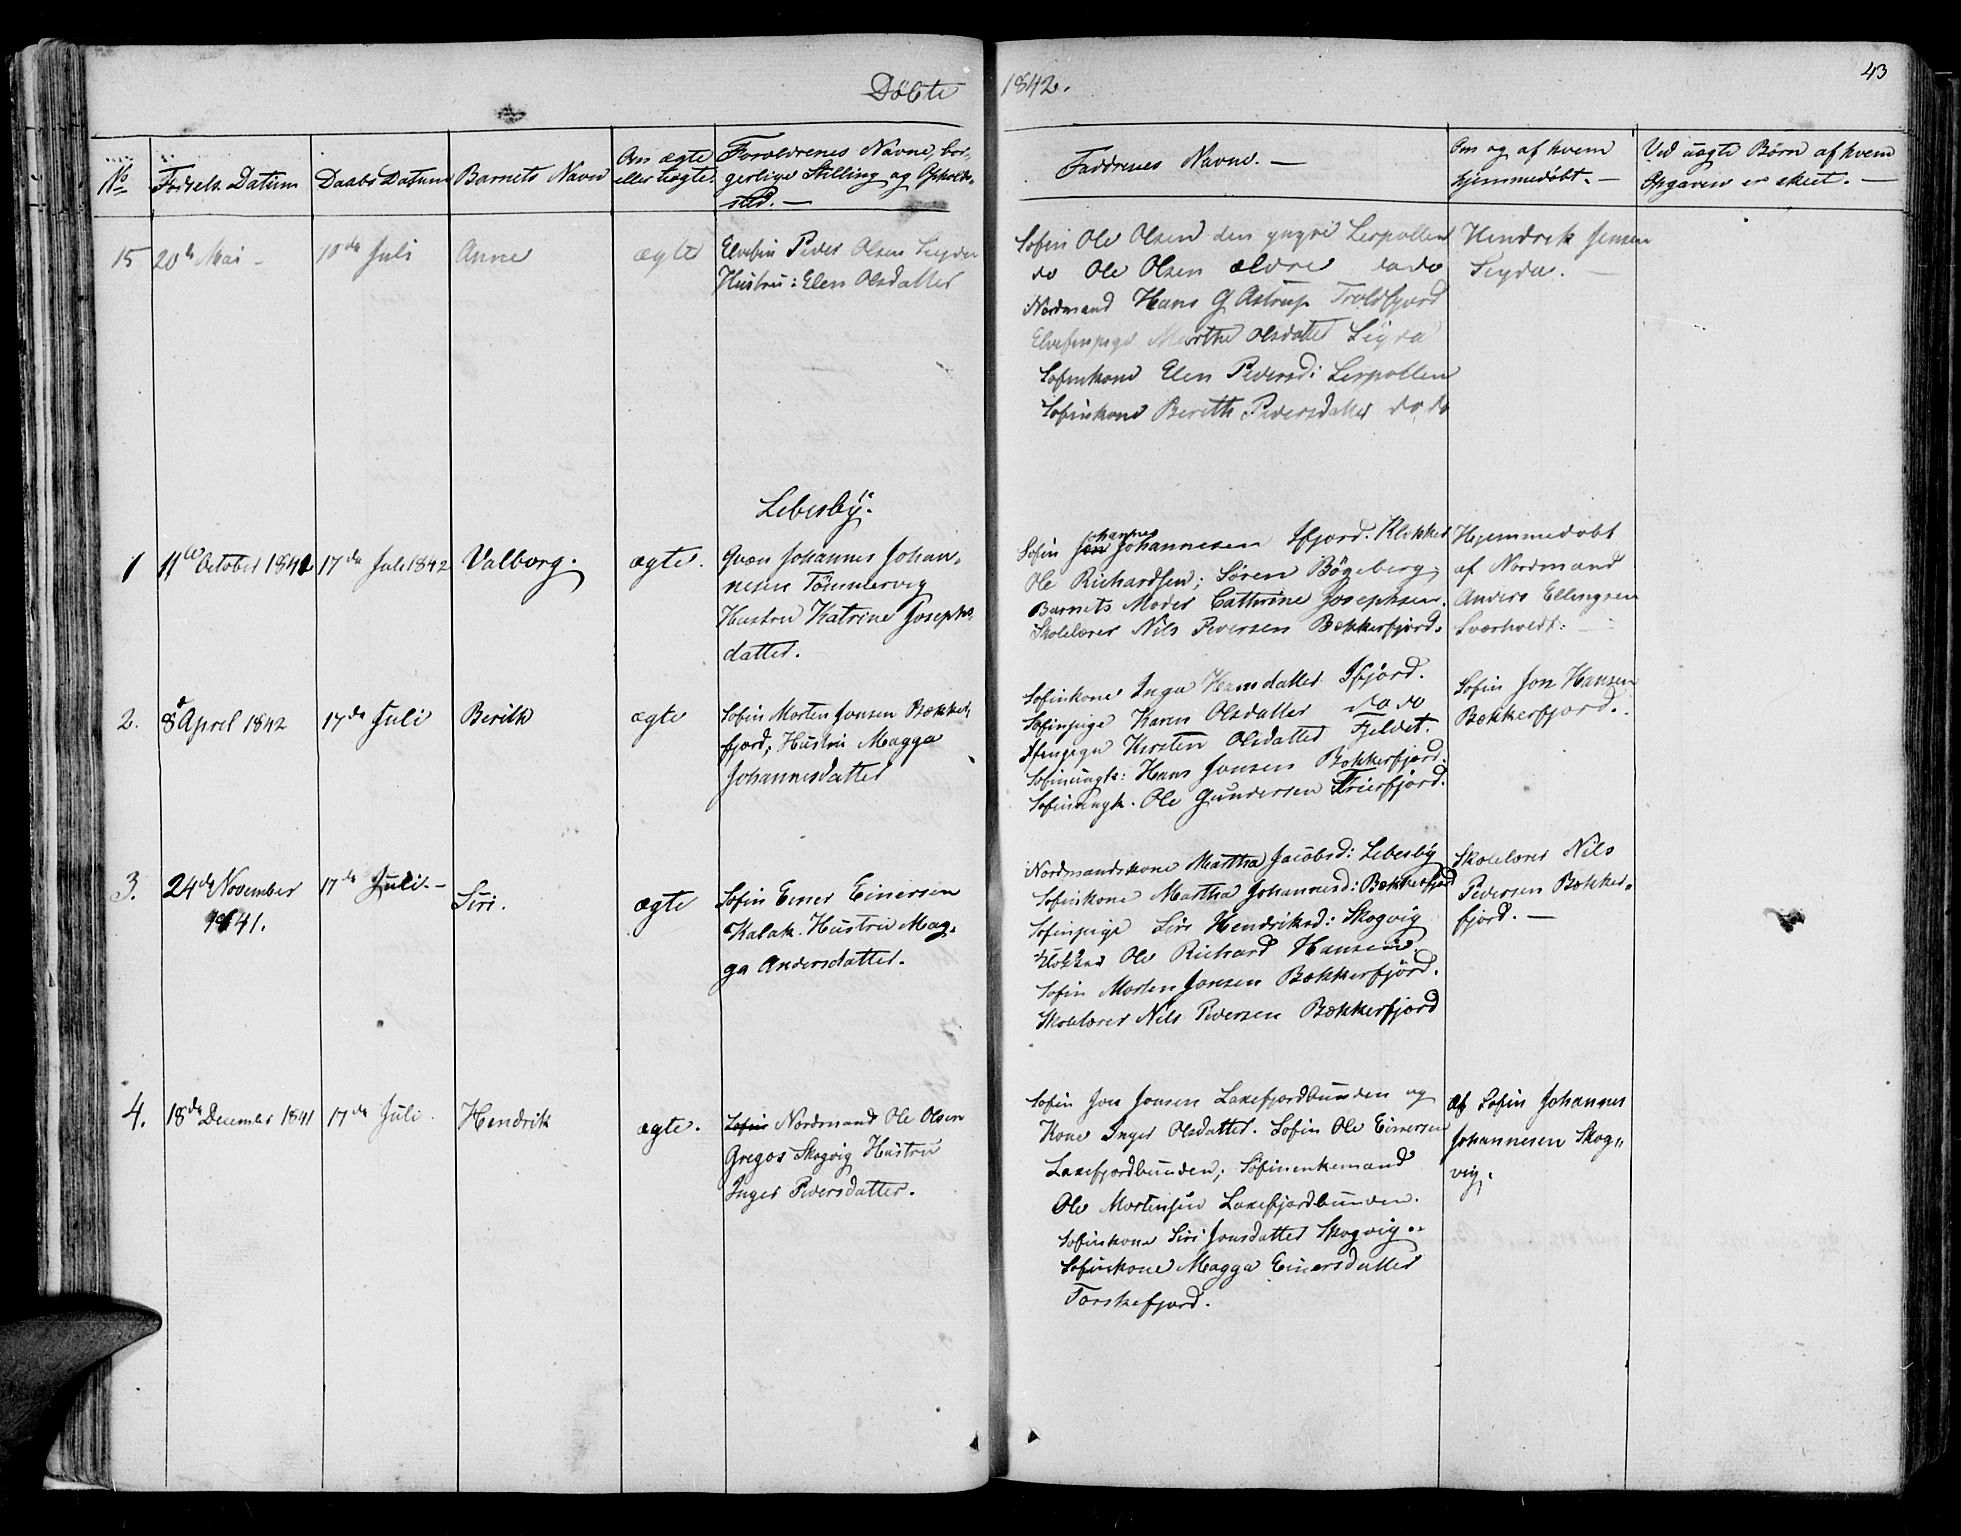 Döbte 1842.
43
No
Fødsels Datum
Daabs Datum
Barnets Navn
Om ægte
eller uægte.
Forældrenes Navne, bor-
gerlige Stilling og Opholds-
sted. —
Faddrenes Navne. —
Om og af hvem
hjemmedøbt. —
Ved uægte Børn af hvem
Opgaven er skeet. —
15
20de Mai –
10de Juli
Anne
ægte
Elvefin Peder Olsen
Hustru: Elen Olsdatter
Søfin Ole Olsen den yngre Lerpollen
do Ole Olsen ældre do do
Nordmand Hans G Astrup Troldfjord
Elvefinpige Marthe Olsdatter
Søfinkone Elen Pedersd: Lerpollen
Søfinkone Berith Pedersdatter do do
Hendrik Jensen
Lebesby.
1
11te October 1841
17de Juli 1842
Valborg.
ægte.
Qvæn Johannes Johan-
nesen Tömmervig
Hustru Katrine Josephs-
datter.
Søfin Johannes Johannesen Ifjord. Klokker
Ole Richardsen; Sören Bögeberg;
Barnets Moder Cathrine Josephsen.
Skolelærer Nils Pedersen Bekkerfjord.
Hjemmedøbt
af Nordmand
Anders Ellingsen
Sværholdt: —
2.
8de April 1842
17de Juli
Berith
ægte
Søfin Morten Jonsen Bekker-
fjord; Hustru Magga
Johannesdatter
Søfinkone Inga Hansdatter Ifjord.
Søfinpige Karen Olsdatter do do
Kirsten Olsdatter Fjeldet.
Søfinungk: Hans Jonsen Bekkerfjord.
Søfinungk. Ole Gundersen Frierfjord.
Søfin Jon Hansen
Bekkerfjord.
3.
24de November
1841.
17de Juli. –
Siri.
ægte
Søfin Einer Einersen
Kalak. Hustru Mag-
ga Andersdatter.
Nordmandskone Martha Jacobsd: Lebesby
Søfinkone Martha Johannesd: Bekkerfjord
Søfinpige Siri Hendriksd: Skogvig
Klokker Ole Richard Hansen.
Søfin Morten Jonsen Bekkerfjord.
Skolelærer Nils Pedersen Bekkerfjord
Skolelærer Nils
Pedersen Bekker-
fjord. —
4.
18de December 1841
17de Juli.
Hendrik
ægte.
Søfin Nordmand Ole Olsen
Gregos Skogvig Hustru
Inger Pedersdatter.
Søfin Jon Jonsen Laxefjordbunden og
Kone Inger Olsdatter. Søfin Ole Einersen
Laxefjordbunden; Søfinenkemand
Ole Mortensen Laxefjordbunden.
Søfinkone Siri Jonsdatter Skogvig.
Søfinkone Magga Einersdatter
Torskefjord.
af Søfin Johannes
Johannesen Skog-
vig.